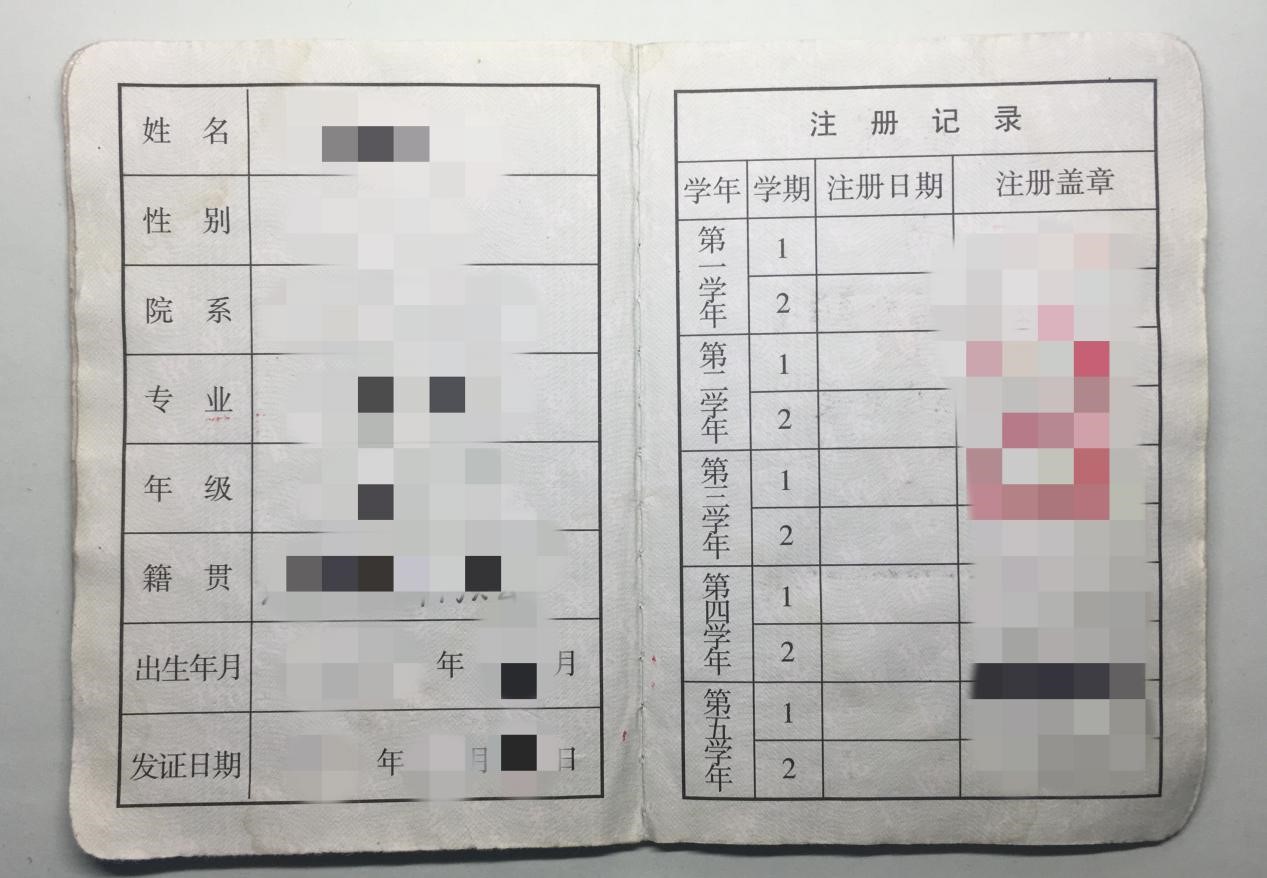 姓 名
性 别
院 系
专 业
年 级
籍 贯
出生年月 年 月
发证日期 年 月 日
注 册 记 录
学年 学期 注册日期 注册盖章
第一学年 1
2
第二学年 1
2
第三学年 1
2
第四学年 1
2
第五学年 1
2